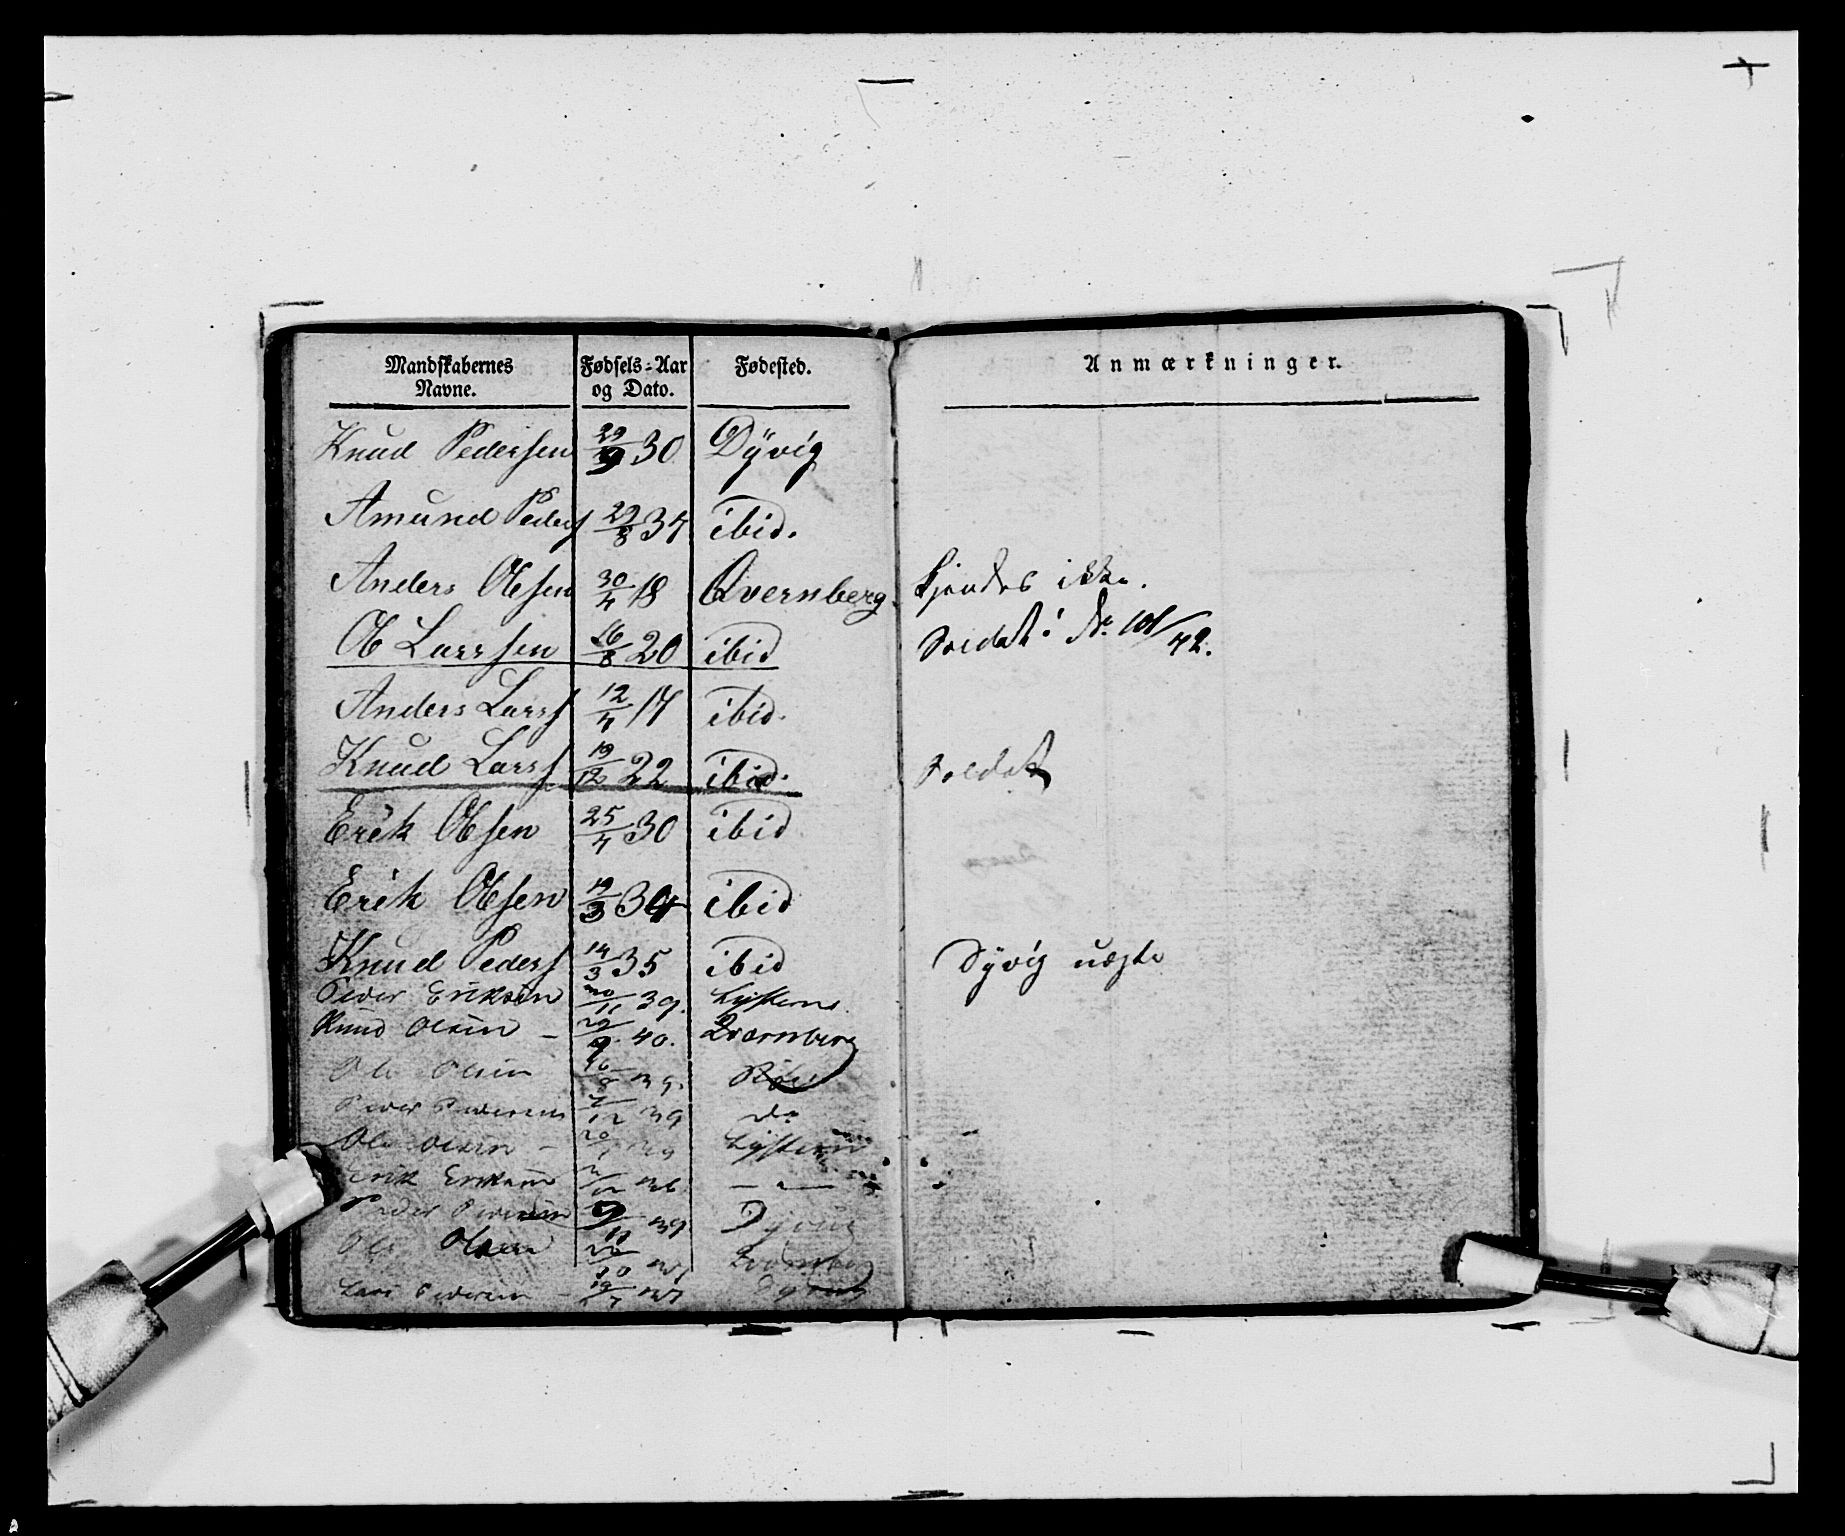 Mandskabernes Navne. Fødsels-Aar og Dato. Fødested. Anmærkninger.
Knud Pedersen 29/9 30 Dÿvig
Amund Peders 29/8 34 ibid.
Anders Olsen 30/4 18 Qvernberg kjendes ikke.
Ole Larssen 16/8 20 ibid Soldat i No 101/42.
Anders Larss 12/4 17 ibid.
Knud Larss 19/12 22 ibid. Soldat
Erik Olsen 25/4 30 ibid
Erik Olsen 19/3 34 ibid
Knud Peders 14/3 35 ibid Dyvig uægte
Peder Eriksen 39.
Knud Olsen - 29/9 40. Qvernberg
Ole Olsen 39.
Peder Pedersen /12 39 do
Ole Olsen -
Erik Eriksen 36 — " —
Peder Pedersen 9/ 39 Dyvig
Ole Olsen Qvernberg
Lars Pedersen - 37 Dyvig